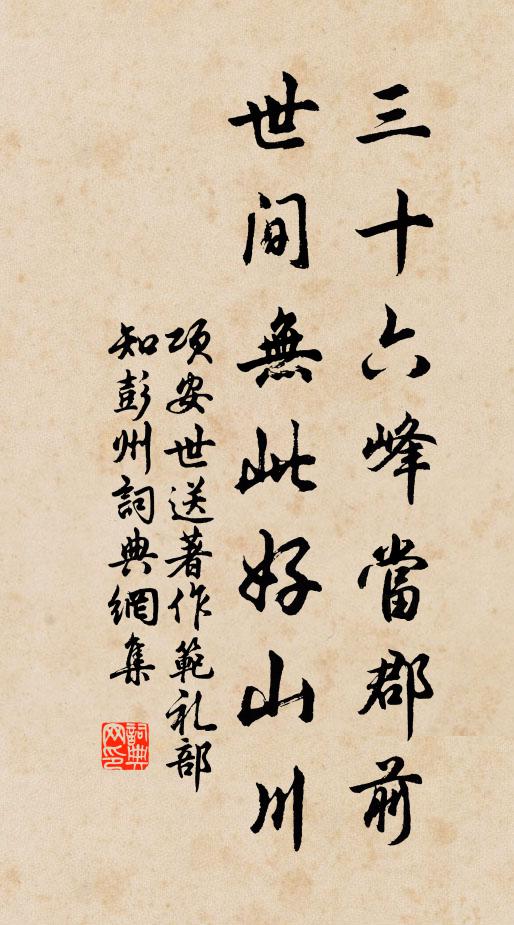 三十六峰當郡前
世间無此好山川
项安世送著作範礼部
知彭州詞典網集
詞典网印